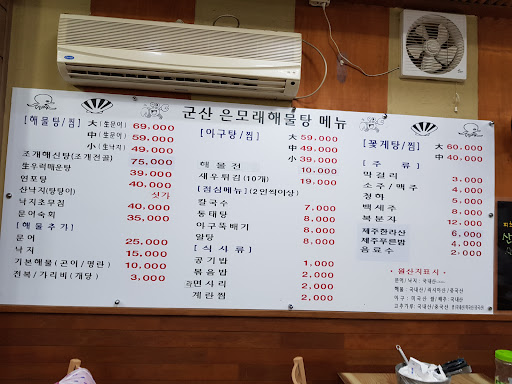 군산 은모래해물탕 메뉴
[해물탕/찜] 大 (生문어) 69,000
中 (生문어) 59,000
小 (生낙지) 49,000
조개해신탕(조개전골) 75,000
生우럭매운탕 39,000
연포탕 40,000
산낙지(탕탕이) 싯가
낙지초무침 40,000
문어숙회 35,000
[해물추가]
문어 25,000
낙지 15,000
기본해물(곤이/명란) 10,000
전복/가리비(개당) 3,000
[아구탕/찜] 大 59,000
中 49,000
小 39,000
해물전 10,000
새우튀김(10개) 19,000
[점심메뉴] (2인씩이상)
칼국수 7,000
동태탕 8,000
아구뚝배기 8,000
알탕 8,000
[식사류]
공기밥 1,000
볶음밥 2,000
면사리 2,000
계란찜 2,000
[꽃게탕/찜] 大 60,000
中 40,000
[주류]
막걸리 3,000
소주/맥주 4,000
청하 5,000
백세주 8,000
복분자 12,000
제주한라산 6,000
제주푸른밤 4,000
음료수 2,000
원산지표시
문어/낙지 : 국내산